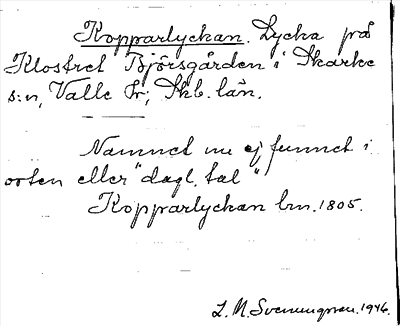 Kopparlyckan. Lycka på
Klostret Björsgården i Skarke
s:n, Valle hr; Skb. län.
Namnet nu ej funnet i
orten eller "dagl. tal"
Kopparlyckan lm. 1805.
L. M. Svenungsson. 1946.